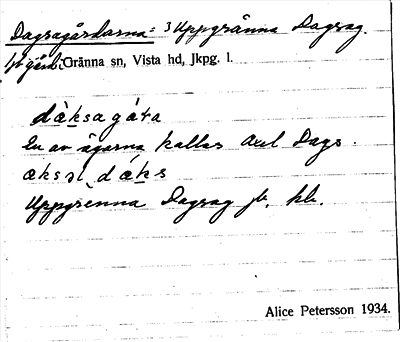 Dagsgårdarna: 3 Uppgränna Dagsag.
Gränna sn, Vista hd, Jkpg. l.
dàksagáta
En av ägarna kallas Axel Dags.
æksəl dáks
Uppgrènna Dagsag jb, hb.
Alice Petersson 1934.